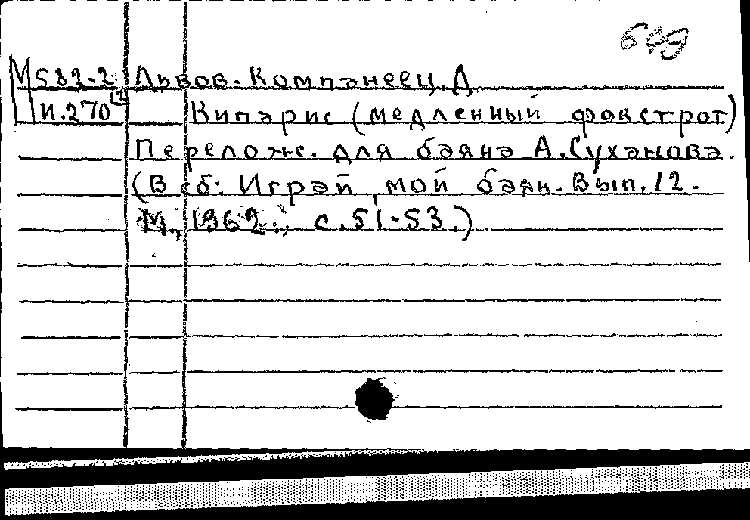 649
М 582-2 Львов-Компанеец, Д.
И.270 Кипарис (медленный фокстрот)
Перелож. для баяна А. Суханова.
(В сб: Играй, мой баян. Вып. 12.
М., 1962. с. 51-53.)